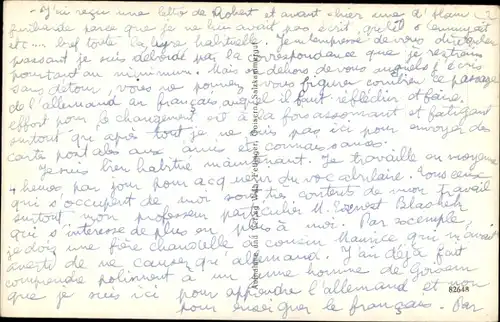 - J'ai reçu une lettre de Robert et avant-hier une d'
parce que je ne lui avait pas écrit, qu'il s'ennuyait
etc.... bref toute la lyre habituelle. Je m'empresse de vous dire qu'en
passant je suis débordé par la correspondance que je restreins
pourtant au minimum. Mais en dehors de vous auxquels j'écris
sans détour, vous ne pouvez vous figurer combien le passage
de l'allemand au français auquel il faut réfléchir et faire
effort pour le changement est à la fois assommant et fatigant
surtout qu'après tout je ne suis pas ici pour envoyer des
cartes postales aux amis et connaissances.
Je suis bien habitué maintenant. Je travaille en moyenne
heures par jour pour acquérir du vocabulaire. Tous ceux
qui s'occupent de moi sont très contents de mon travail
surtout mon professeur particulier M. Ernest Blaschek
qui s'intéresse de plus en plus à moi. Par exemple,
je dois une fière chandelle à cousin Maurice qui m'avait
averti de ne causer qu'allemand. J'en déjà fait
comprendre poliment à un jeune homme de
que je suis ici pour apprendre l'allemand et non
pour enseigner le français. Par
82648